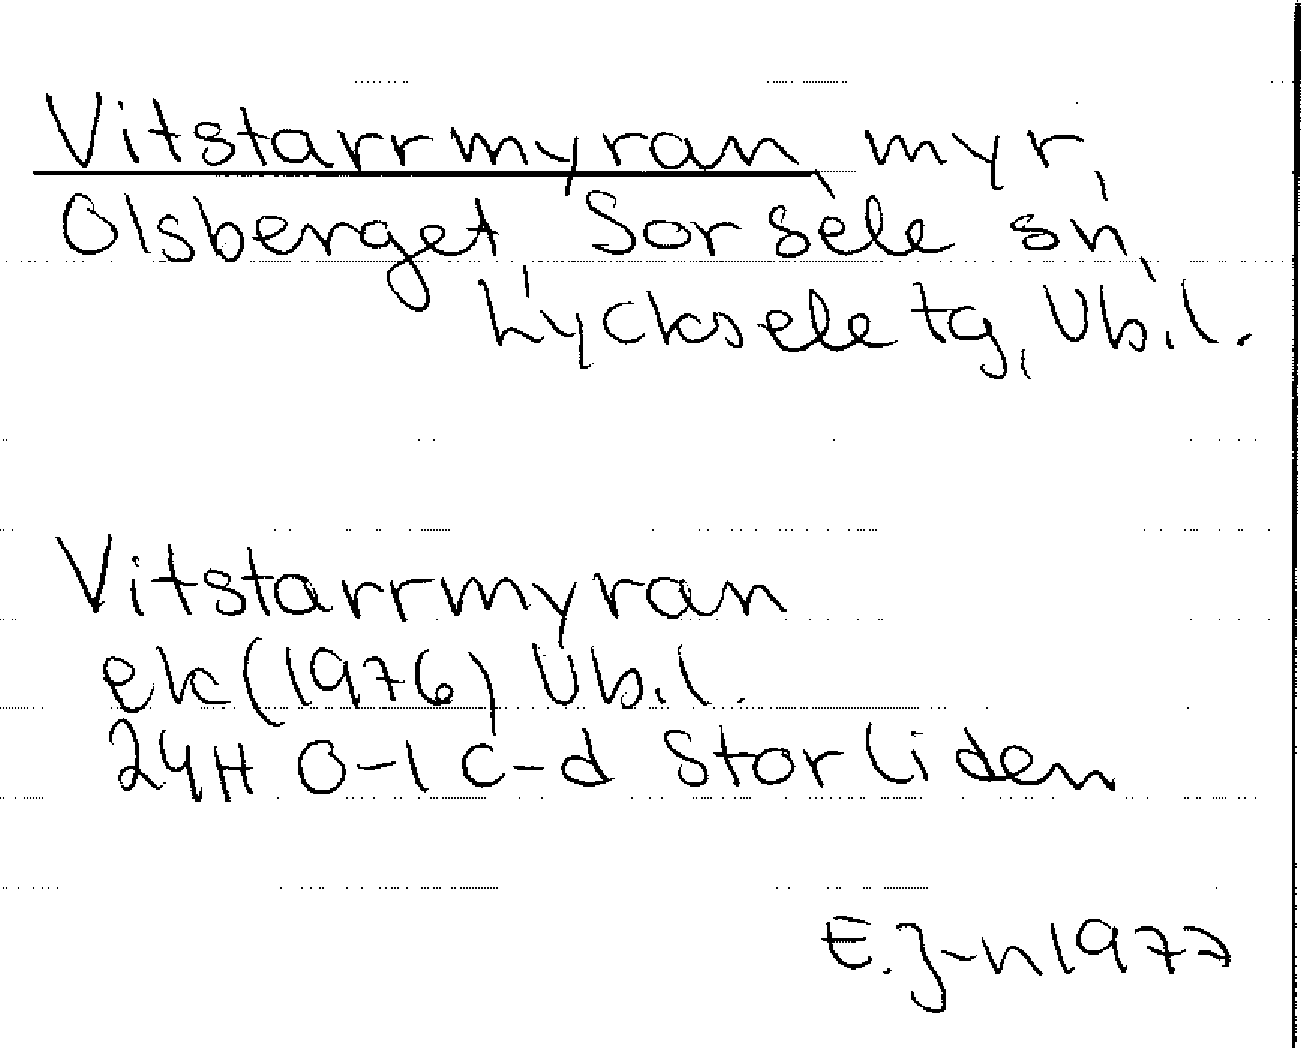 Vitstarrmyran, myr,
Olsberget, Sorsele sn,
Lycksele tg, Vb.l.
Vitstarrmyran
ek (1976) Vb.l.
24H 0-1 c-d Storliden
E.J-n 1977